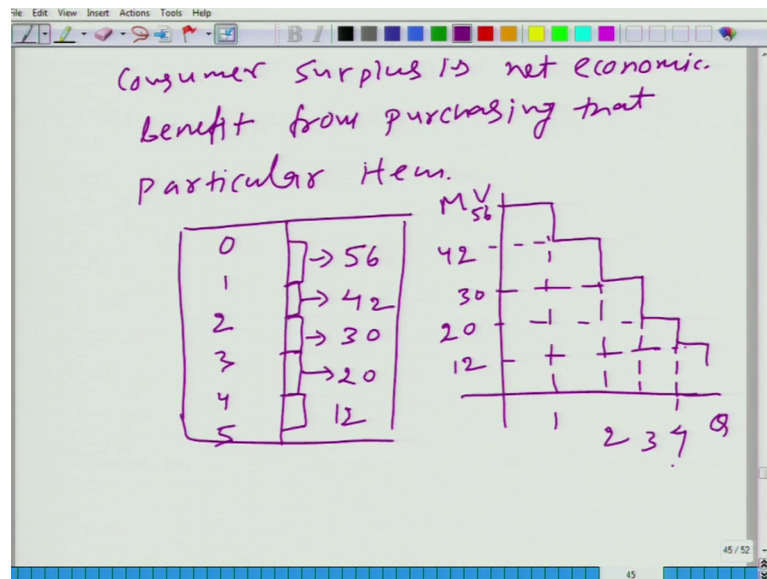 File Edit View Insert Actions Tools Help
B I
Consumer surplus is net economic.
benefit from purchasing that
particular item.
0
1
2
3
4
5
→ 56
→ 42
→ 30
→ 20
12
MV
56
42
30
20
12
1 2 3 4 Q
45 / 52
45